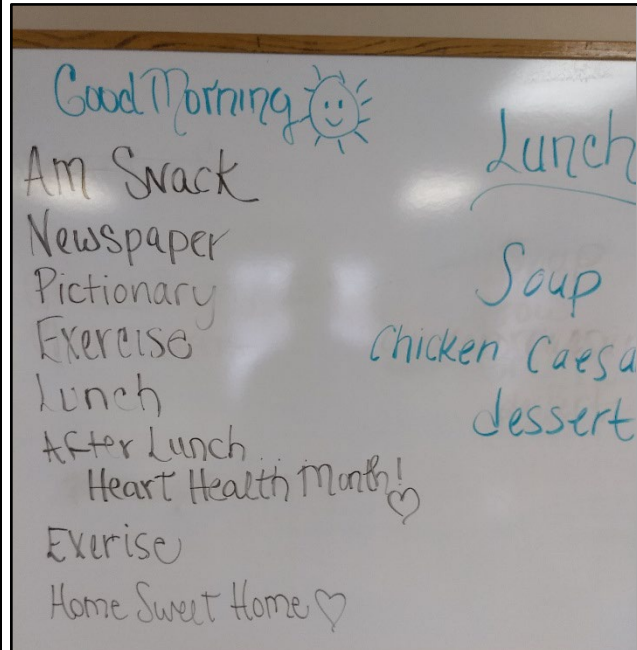 Good Morning
Am Snack
Newspaper
Pictionary
Exercise
Lunch
After Lunch...
Heart Health Month!
Exerise
Home Sweet Home
Lunch
Soup
Chicken Caesa
dessert